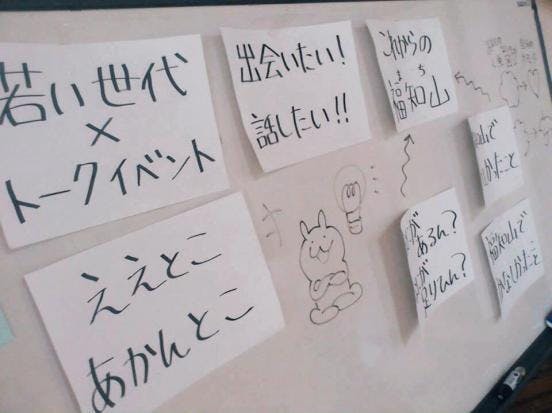 若い世代
×
トークイベント
出会いたい!
話したい!!
これからの
まち
福知山
ええとこ
あかんとこ
があるん?
山で
かったこと
福知山で